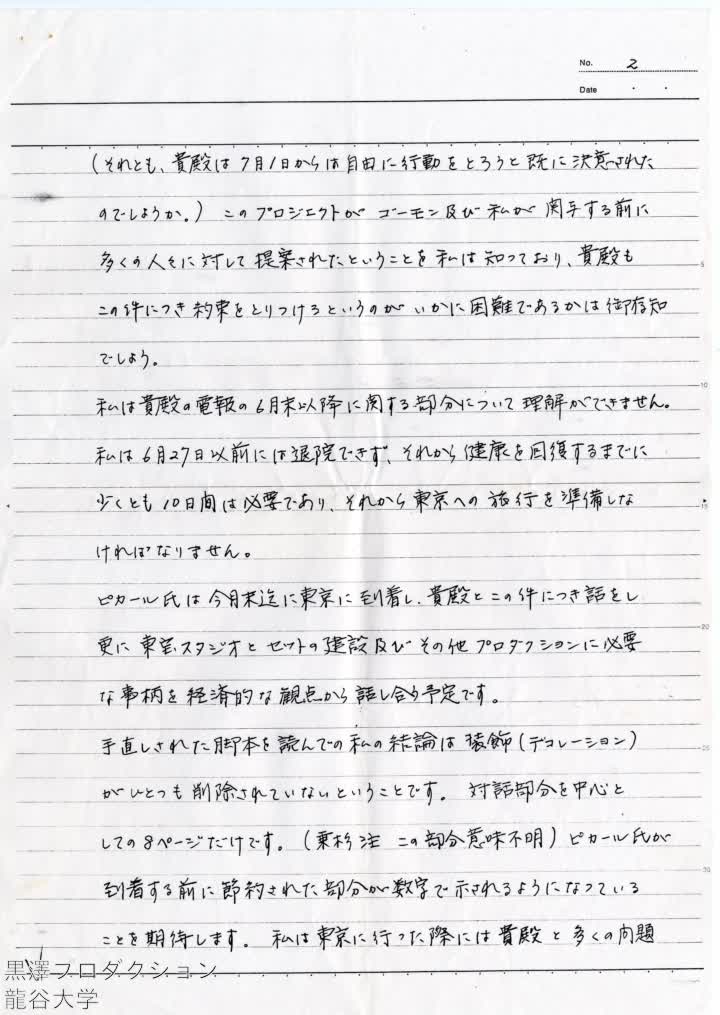 No. 2
Date ・ ・
(それとも、貴殿は7月1日からは自由に行動をとろうと既に決意された
のでしょうか。) このプロジェクトが ゴーモン及び私が関与する前に
多くの人々に対して提案されたということを私は知っており、貴殿も
この件につき約束をとりつけるというのがいかに困難であるかは御存知
でしょう。
私は貴殿の電報の6月末以降に関する部分について理解ができません。
私は6月27日以前には退院できず、それから健康を回復するまでに
少くとも10日間は必要であり、それから東京への旅行を準備しな
ければなりません。
ピカール氏は今月末迄に東京に到着し、貴殿とこの件につき話をし
更に東宝スタジオとセットの建設及びその他プロダクションに必要
な事柄を経済的な観点から話し合う予定です。
手直しされた脚本を読んでの私の結論は装飾(デコレーション)
がひとつも削除されていないということです。 対話部分を中心と
しての8ページだけです。(乗杉注 この部分意味不明) ピカール氏が
到着する前に節約された部分が数字で示されるようになっている
ことを期待します。 私は東京に行った際には貴殿と多くの問題
5
10
15
20
25
30
黒澤プロダクション
龍谷大学